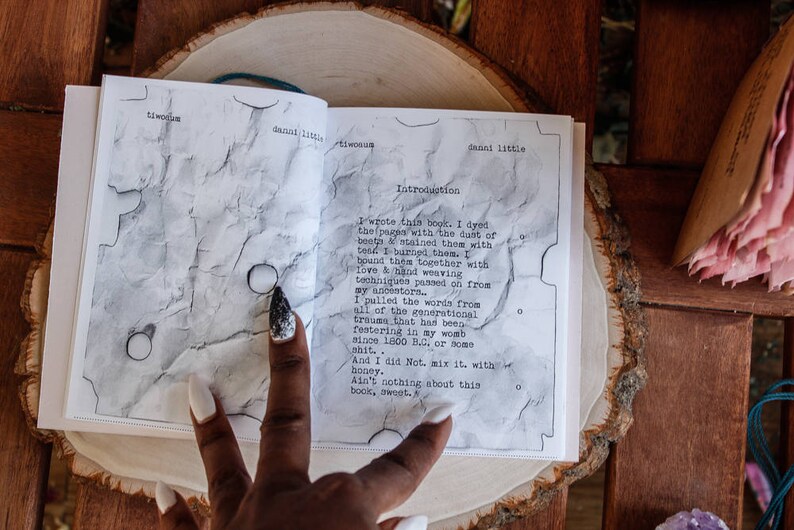 tiwoaum
danni little
tiwoaum
danni little
Introduction
I wrote this book. I dyed
the pages with the dust of
beets & stained them with
tea. I burned them. I
bound them together with
love & hand weaving
techniques passed on from
my ancestors..
I pulled the words from
all of the generational
trauma that has been
festering in my womb
since 1800 B.C. or some
shit. .
And I did Not. mix it. with
honey.
Ain't nothing about this
book, sweet.